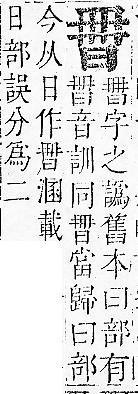 字之譌舊本曰部有
音訓同當歸曰部
今从日作溷載
日部誤分為二